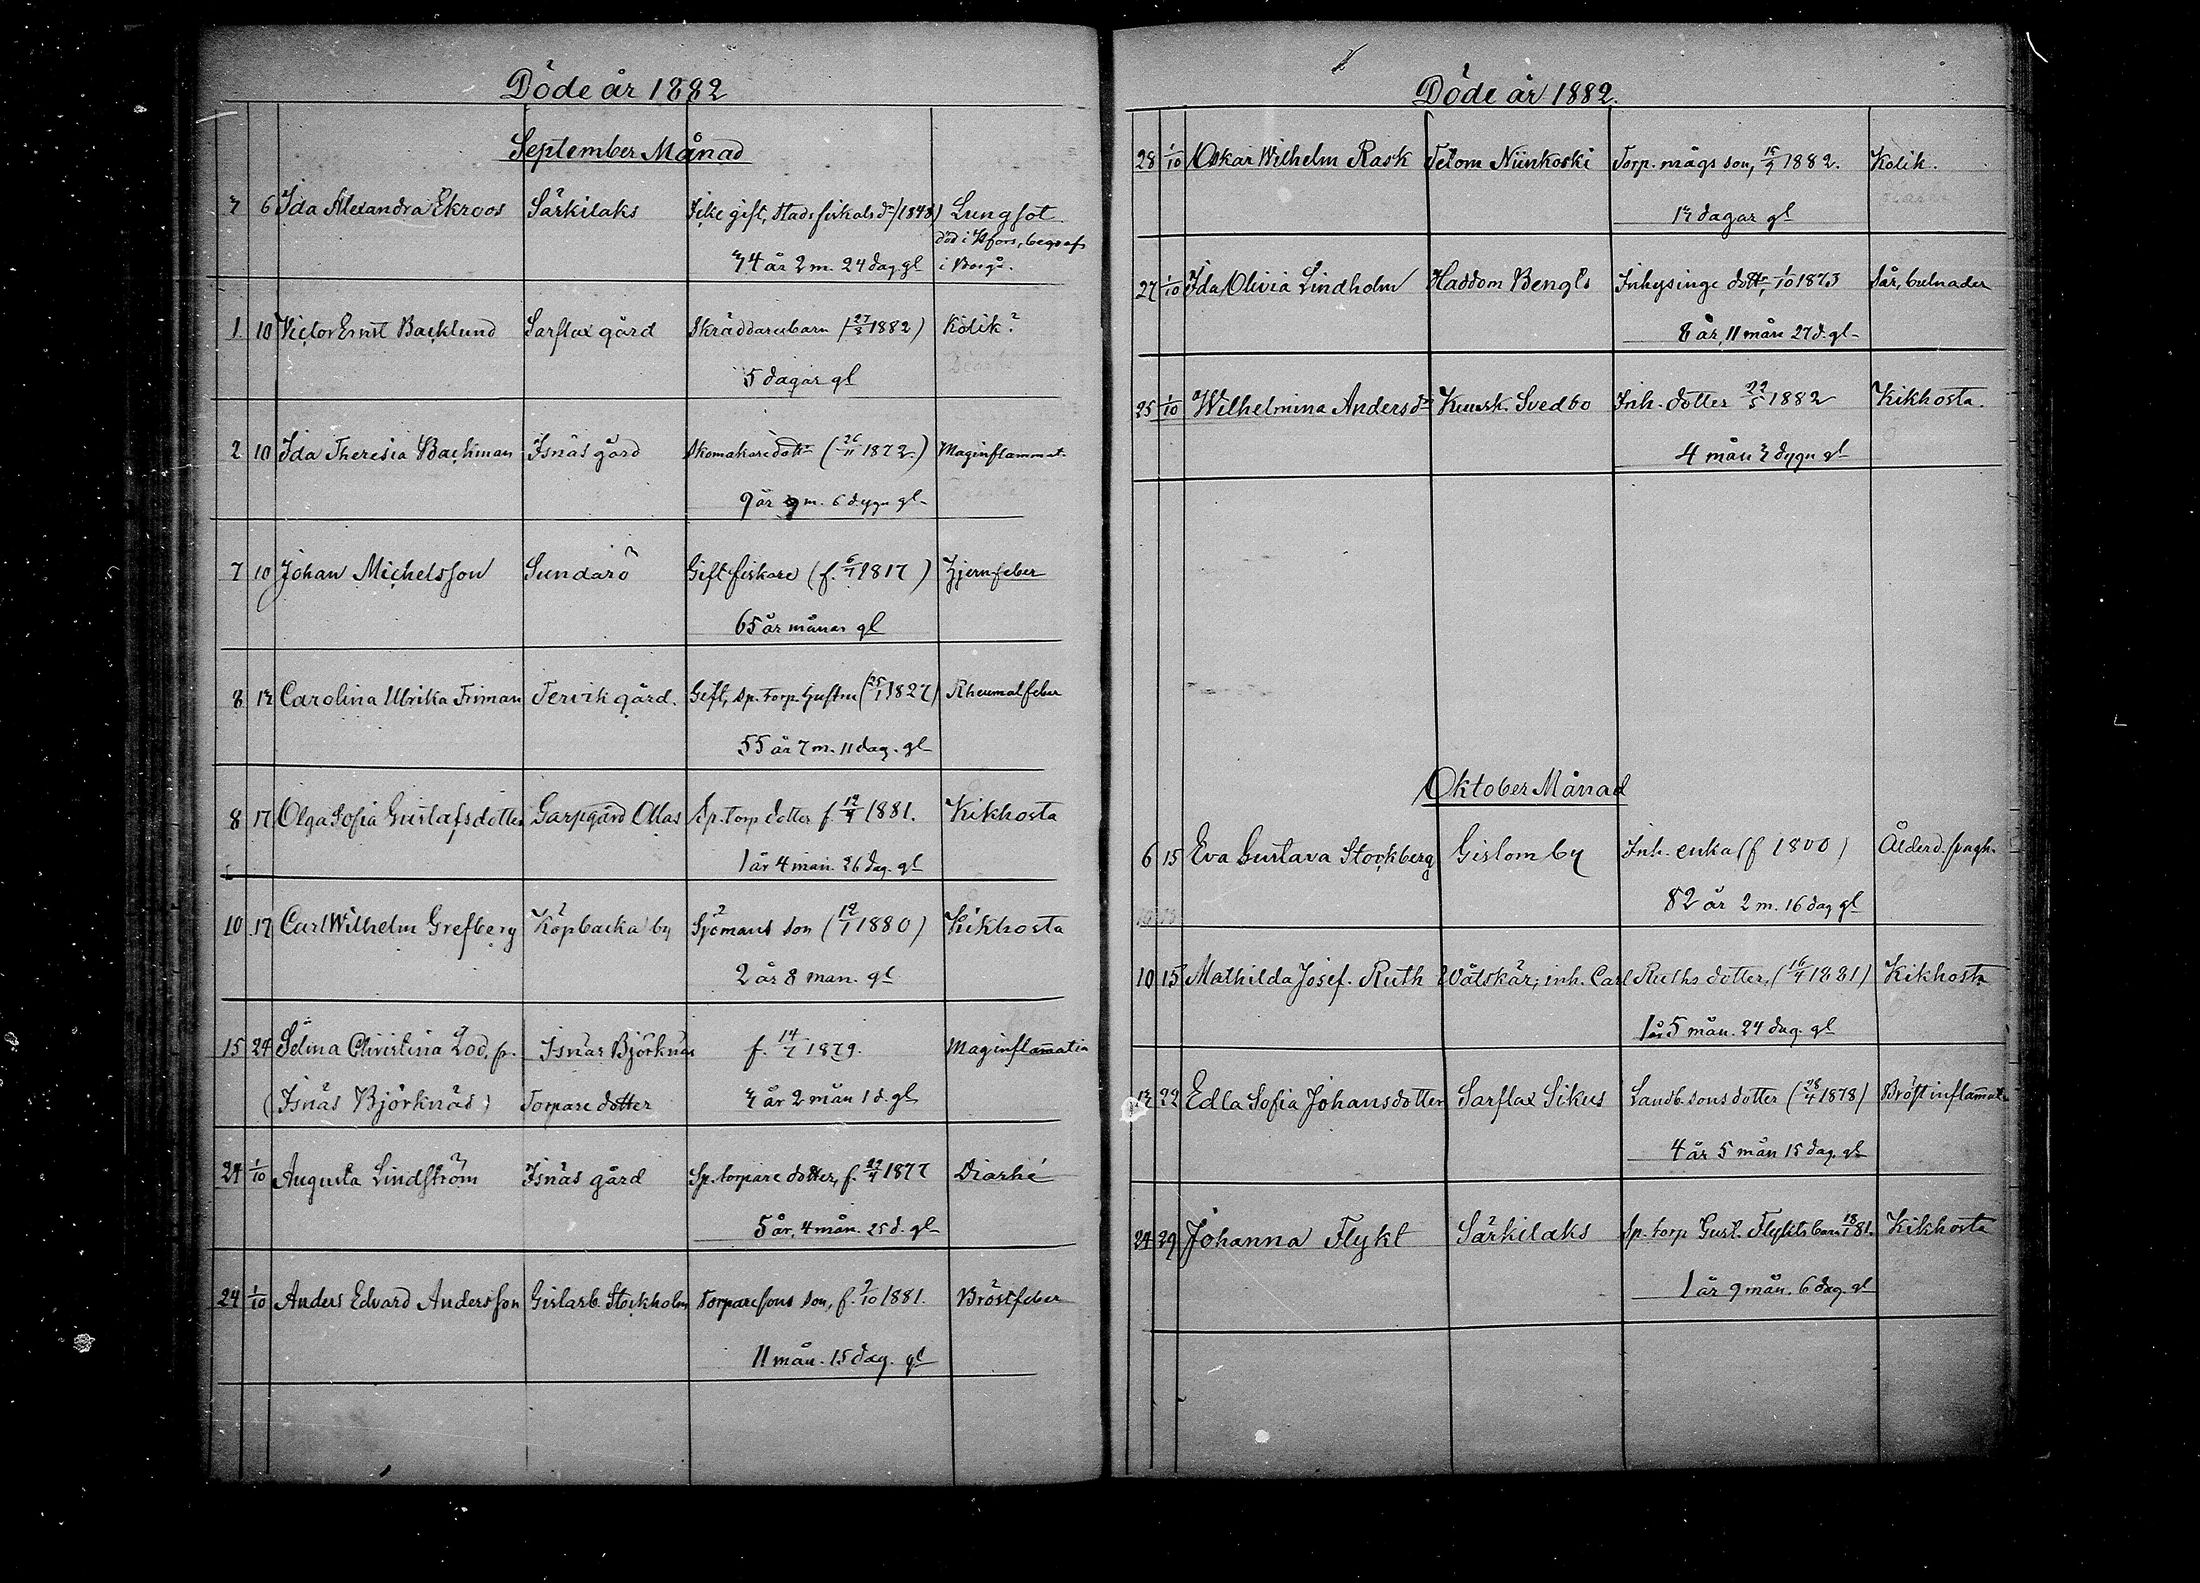 Döde år 1882
September Månad
3 6 Ida Alexandra Ekroos Särkilaks Icke gift, stadsfiskals dr (1848) Lungsot
död i Hfors, begrafs
34 år 2 m. 24 dag. gl i Borgå.
1. 10 Victor Ernst Backlund Sarflax gård Skräddarebarn (27/8 1882) Kolik?
5 dagar gl
2 10 Ida Theresia Backman Isnäs gård Skomakaredottr (26/11 1872) Maginflammat.
9 år 9 m. 6 dygn gl
7 10 Johan Michelsson Sundarö Gift fiskare (f. 6/7 1817) Hjernfeber
65 år månar gl
8 13 Carolina Ulrika Friman Tervik gård. Gift, sp. torp. hustru (25/1 1827) Rheumatfeber
55 år 7 m. 11 dag. gl
8 17 Olga Sofia Gustafsdotter Garpgård Ollas Sp. torp dotter f. 12/4 1881. Kikhosta
1 år 4 mån. 26 dag. gl
10 17 Carl Wilhelm Grefberg Köpbacka by Sjömans son (12/1 1880) Kikhosta
2 år 8 mån. gl
15 24 Selma Christina Löd. fr. Isnäs Björknäs f. 14/7 1879. Maginflammatia
(Isnäs Björknäs) Torpare dotter 3 år 2 mån 1 d. gl
24 1/10 Augusta Lindström Isnäs gård Sp. torpare dotter, f. 29/4 1877 Diarhé
5 år, 4 mån. 25 d. gl
24 1/10 Anders Edvard Andersson Gislarb. Stockholm Torparesons son, f. 9/10 1881. Bröstfeber
11 mån. 15 dag. gl
Döde år 1882.
28 1/10 Oskar Wilhelm Rask Tetom Niinkoski Torp. mågs son, 15/9 1882. Kolik.
13 dagar gl
27 1/10 Ida Olivia Lindholm Haddom Bengts Inhysinge dottr, 1/10 1873 Sår, bulnader
8 år, 11 mån 27 d. gl
25 1/10 Wilhelmina Andersdr Kuusk. Svedbo Inh. dotter 22/5 1882 Kikhosta.
4 mån 3 dygn gl
Oktober Månad
6 15 Eva Gustava Stockberg Gislom by Inh. enka (f 1800) Ålderd. svagh.
82 år 2 m. 16 dag gl
10 15 Mathilda Josef. Ruth Våtskär, inh. Carl Ruths dotter, (16/4 1881) Kikhosta
1 år 5 mån. 24 dag. gl
13 22 Edla Sofia Johansdotter Sarflax Sikus Landb. sons dotter (28/4 1878) Bröstinflammat.
4 år 5 mån 15 dag. gl
24 29 Johanna Flykt Särkilaks Sp. torp Gust. Flykts barn 18/1 81. Kikhosta
1 år 9 mån. 6 dag. gl